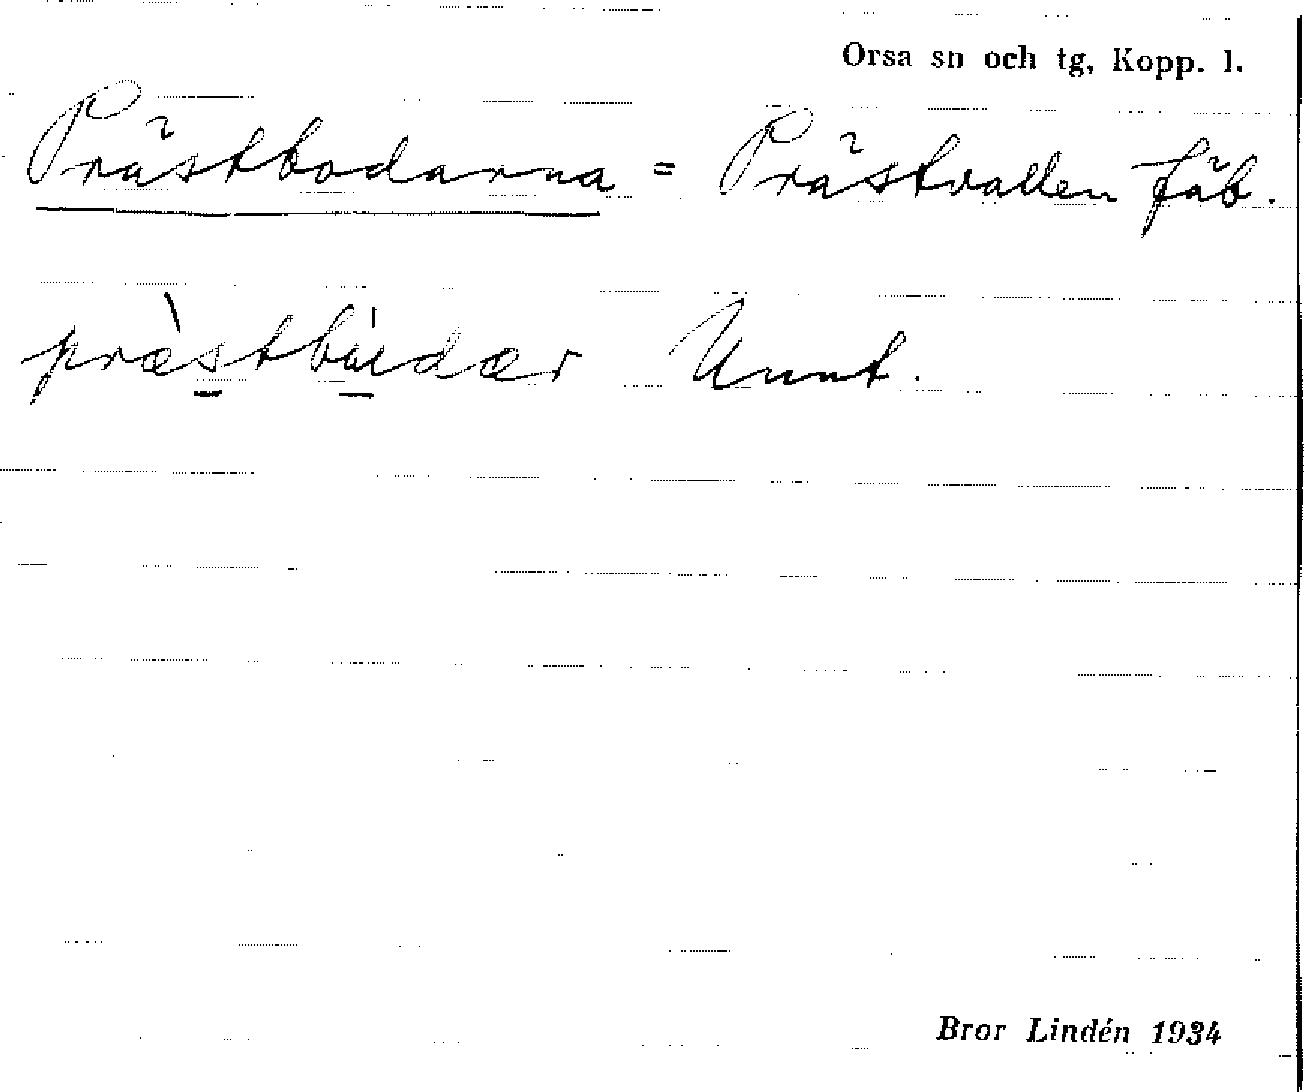 Orsa sn och tg, Kopp. l.
Prästbodarna = Prästvallen fäb.
Unnt.
Bror Lindén 1934